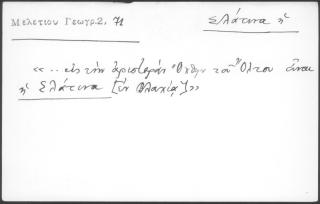 Μελετίου Γεωγρ. 2, 71
Σλάτινα ἡ
«.. εἰς τὴν ἀριστερὰν ὄχθην τοῦ Ὄλτου εἶναι
ἡ Σλάτινα [ἐν Βλαχίᾳ]»